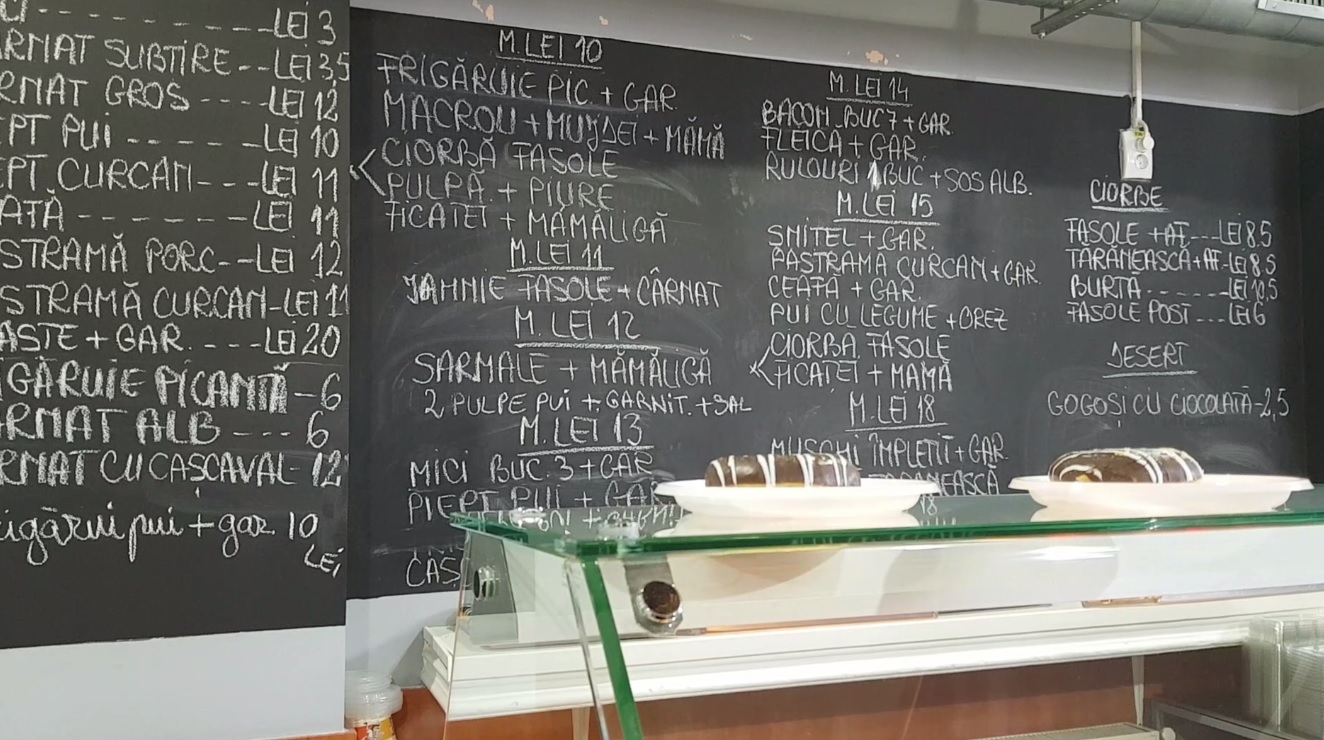 CI - - - - - - LEI 3
RNAT SUBȚIRE - - LEI 3,5
RNAT GROS - - - - LEI 12
EPT PUI - - - - - LEI 10
EPT CURCAN - - - LEI 11
EAFĂ - - - - - - - LEI 11
STRAMĂ PORC - - LEI 12
STRAMĂ CURCAN - LEI 11
OASTE + GAR. - - - - LEI 20
IGĂRUIE PICANTĂ - 6
RNAT ALB - - - 6
RNAT CU CAȘCAVAL - 12
rigărui pui + gar. 10
LEI
M. LEI 10
FRIGĂRUIE PIC. + GAR.
MACROU + MUJDEI + MĂMĂ
CIORBĂ FASOLE
PULPĂ + PIURE
FICATEI + MĂMĂLIGĂ
M. LEI 11
IAHNIE FASOLE + CÂRNAT
M. LEI 12
SARMALE + MĂMĂLIGĂ
2 PULPE PUI + GARNIT. + SAL
M. LEI 13
MICI BUC. 3 + GAR
PIEPT PUI + GAR
CAȘ
M. LEI 14
BACON BUC 7 + GAR.
FLEICA + GAR.
RULOURI 1 BUC + SOS ALB.
M. LEI 15
SNITEL + GAR.
PASTRAMA CURCAN + GAR.
CEAFA + GAR.
PUI CU LEGUME + OREZ
CIORBA FASOLE
FICATEI + MAMA
M. LEI 18
MUSCHI ÎMPLETIT + GAR
ȚĂRĂNEASCĂ
18
CIORBE
FASOLE + AF. - - - LEI 8.5
TĂRĂNEASCĂ + AF - LEI 8.5
BURTA - - - - - - - LEI 10,5
FASOLE POST - - - LEI 6
DESERT
GOGOSI CU CIOCOLATĂ - 2,5